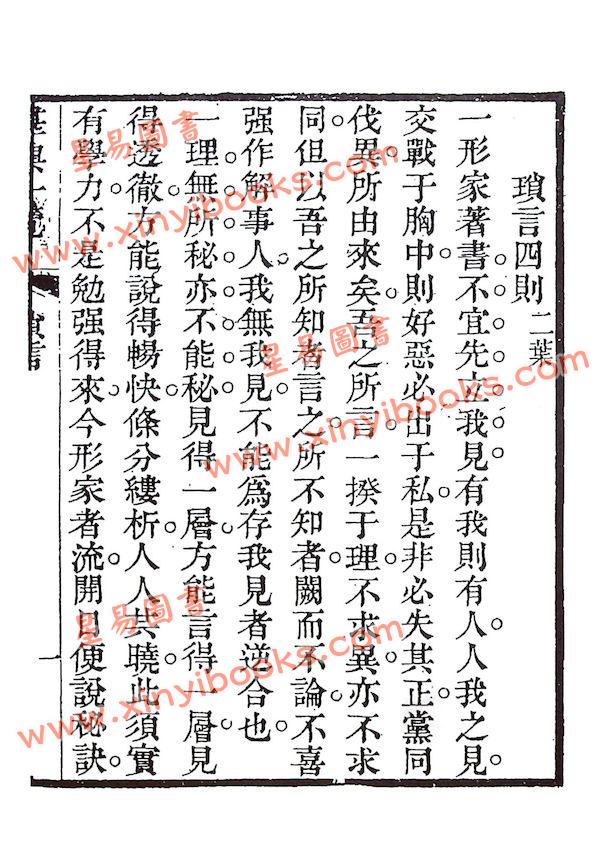 瑣言四則 二葉
一形家著書。不宜先立我見。有我則有人。人我之見。
交戰于胸中。則好惡必出于私。是非必失其正。黨同
伐異。所由來矣。吾之所言。一揆于理。不求異。亦不求
同。但以吾之所知者言之。所不知者闕而不論。不喜
强作解事人。我無我見。不能爲存我見者逆合也。
一理無所秘。亦不能秘。見得一層。方能言得一層。見
得透徹。方能說得暢快。條分縷析。人人共曉。此須實
有學力。不是勉强得來。今形家者流。開口便說秘訣。
瑣言
一
星易圖書
www.xinyibooks.com
星易圖書
www.xinyibooks.com
星易圖書
www.xinyibooks.com